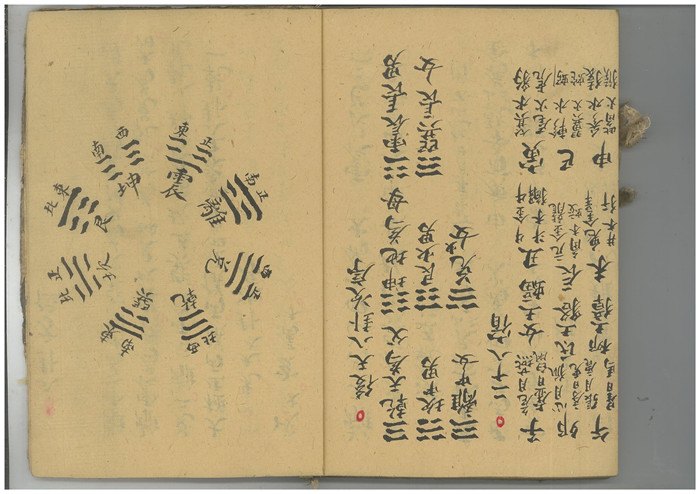 東南
巽
正北
坎
東北
艮
西南
正東
震
正南
離
正西
兌
西北
乾
後天八卦次序
乾天為父 坤地為母 震長男
坎中男 艮少男 巽長女
離中女 兌少女
二十八宿
子 危月燕 虛日鼠 女土蝠 丑 牛金牛 斗木獬 寅 箕水豹 尾火虎
卯 心月狐 房日兔 氐土貉 辰 亢金龍 角木蛟 巳 軫水蚓 翼火蛇
午 張月鹿 星日馬 柳土獐 未 鬼金羊 井木犴 申 參水猿 觜火猴